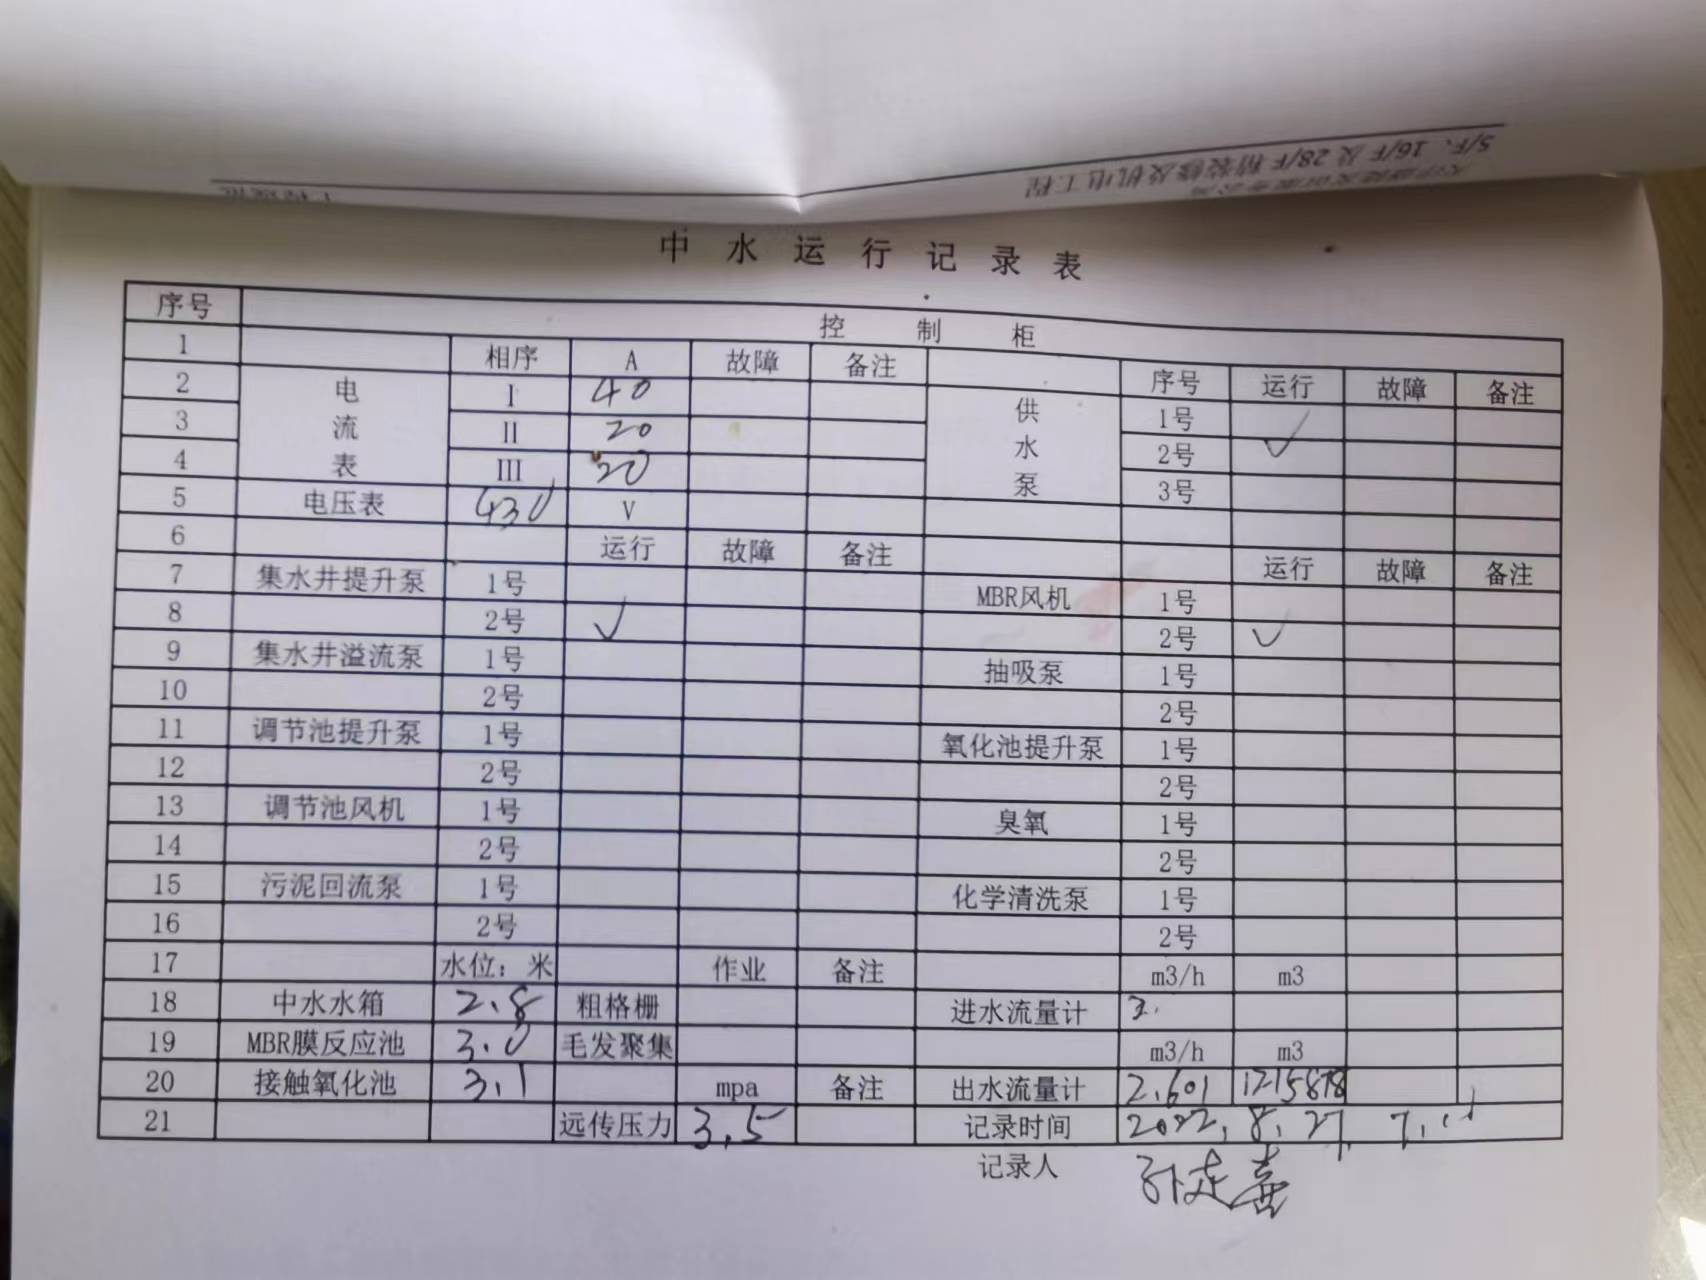 5/F、16/F 及 28/F 精装修及机电工程
中水运行记录表
序号 控制柜
1 相序 A 故障 备注 序号 运行 故障 备注
2 电流表 I 40 供水泵 1号
3 II 20 2号 ✓
4 III 20 3号
5 电压表 430 V
6 运行 故障 备注 运行 故障 备注
7 集水井提升泵 1号 MBR风机 1号
8 2号 ✓ 2号 ✓
9 集水井溢流泵 1号 抽吸泵 1号
10 2号 2号
11 调节池提升泵 1号 氧化池提升泵 1号
12 2号 2号
13 调节池风机 1号 臭氧 1号
14 2号 2号
15 污泥回流泵 1号 化学清洗泵 1号
16 2号 2号
17 水位：米 作业 备注 m3/h m3
18 中水水箱 2.8 粗格栅 进水流量计
19 MBR膜反应池 3.0 毛发聚集 m3/h m3
20 接触氧化池 3.1 mpa 备注 出水流量计 2.601 1215878
21 远传压力 3.5 记录时间 2022.8.27.
记录人